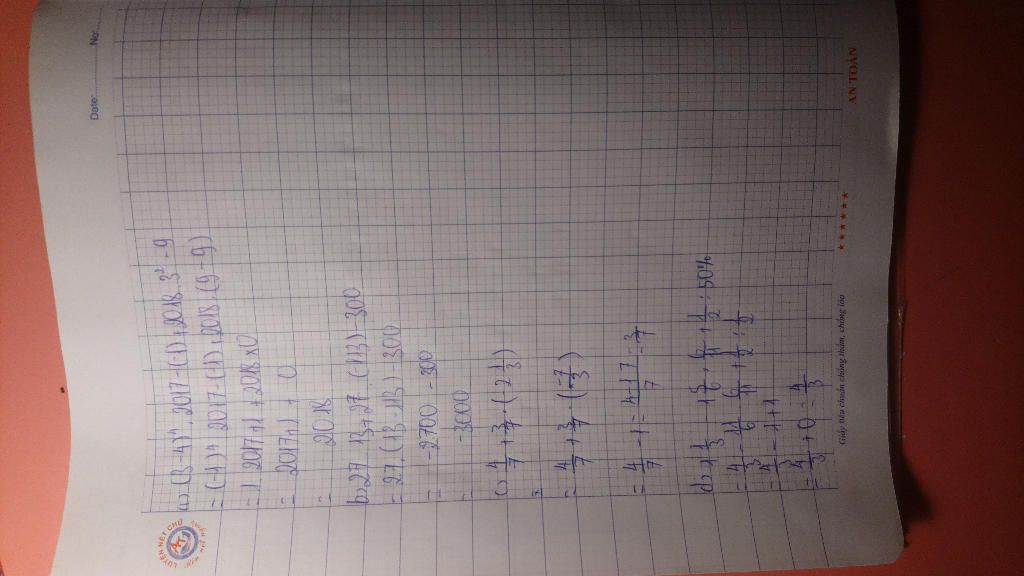 Date: No:
LUYỆN NÉT CHỮ
a) (3-4)ⁿ . 2017 - (-1) + 2018 . 3² - 9
= (-1)ⁿ 2017 - (-1) + 2018 . (9 - 9)
= 1 . 2017 + 1 + 2018 x 0
= 2017 + 1 + 0
= 2018
b) 27 . 13 + 27 . (-113) - 300
= 27 . (13 - 113) - 300
= -2700 - 300
= -3000
c) 4/7 + 3/7 . (-2 1/3)
=
= 4/7 + 3/7 . (-7/3)
= 4/7 - 1 = 4-7/7 = -3/7
d) 1 1/3 - 1 5/6 . 6/11 + 1/2 : 50%
= 4/3 - 11/6 . 6/11 + 1/2 : 1/2
= 4/3 - 1 + 1
= 4/3 + 0 = 4/3
Giấy tiêu chuẩn chống thấm, chống lóa
★★★★★★
AN TOÀN